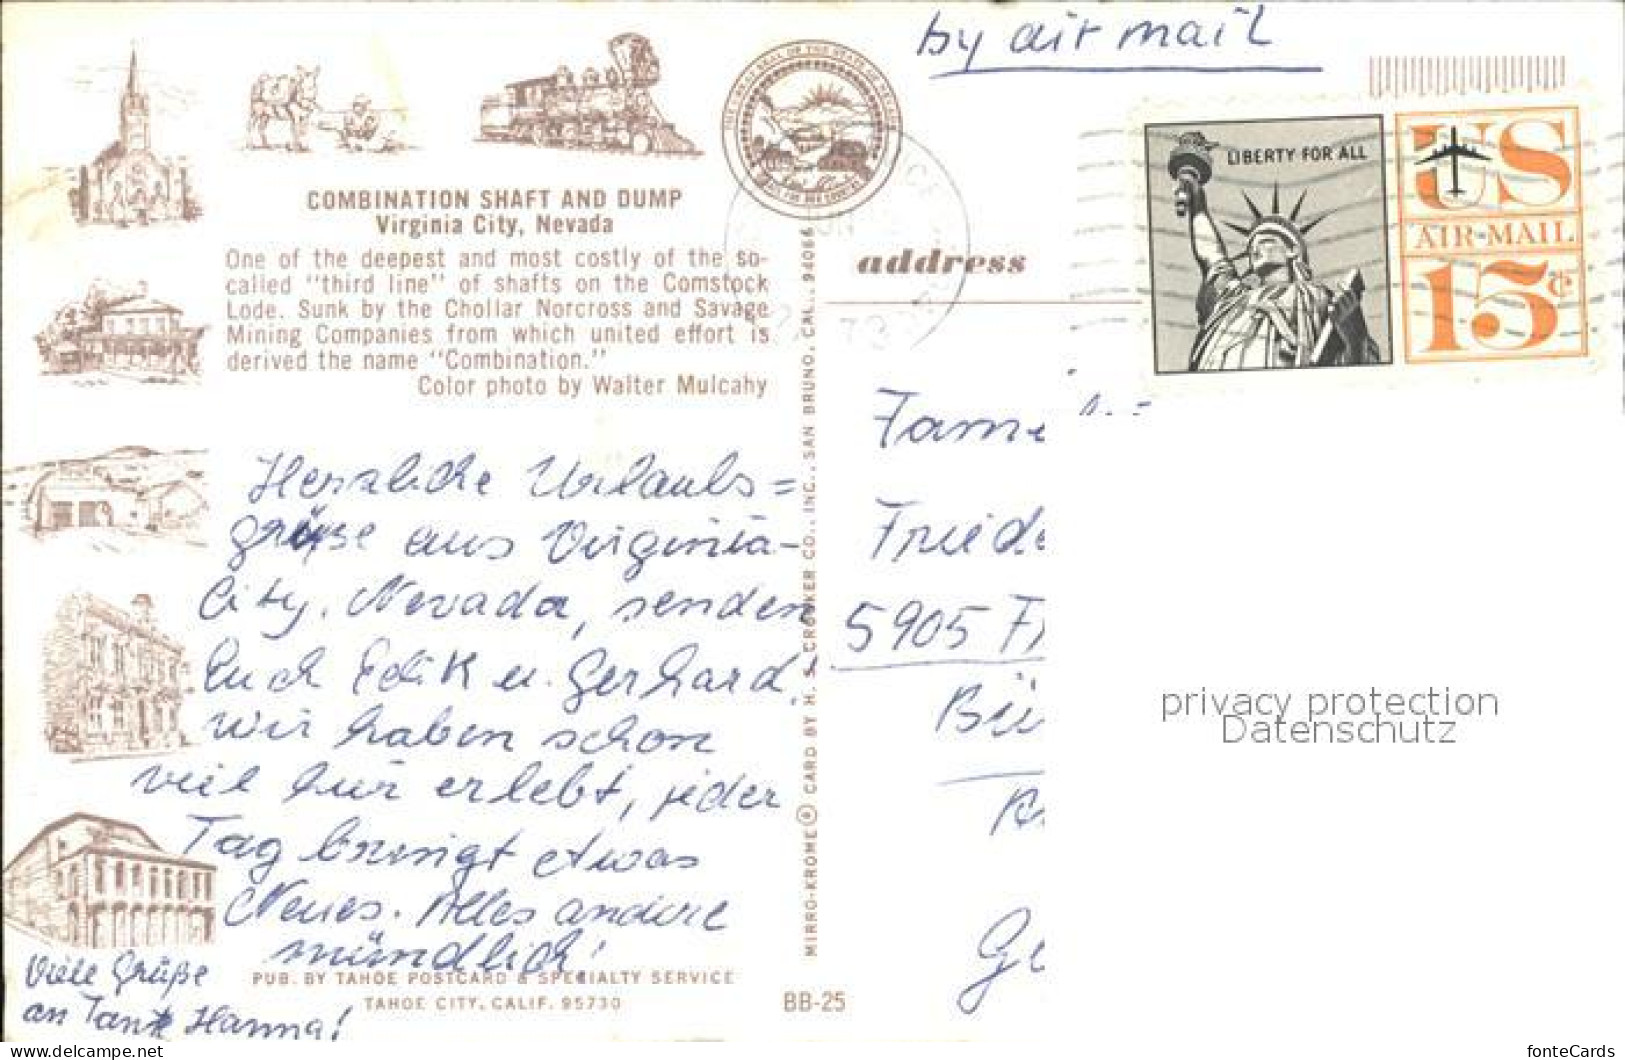 by air mail
LIBERTY FOR ALL
US
AIR-MAIL
15¢
COMBINATION SHAFT AND DUMP
Virginia City, Nevada
One of the deepest and most costly of the so-
called "third line" of shafts on the Comstock
Lode. Sunk by the Chollar Norcross and Savage
Mining Companies from which united effort is
derived the name "Combination."
Color photo by Walter Mulcahy
address
Herzliche Urlaubs=
grüße aus Virginia-
City, Nevada, senden
Euch u. Gerhard,
wir haben schon
viel hier erlebt, jeder
Tag bringt etwas
Neues. Alles andere
mündlich!
Viele Grüße
an Tante Hanna!
PUB. BY TAHOE POSTCARD & SPECIALTY SERVICE
TAHOE CITY, CALIF. 95730
BB-25
MIRRO-KROME ® CARD BY H. S. CROCKER CO., INC., SAN BRUNO, CAL. 94066
Fami
Fried
5905
Bü
privacy protection
Datenschutz
delcampe.net
fonteCards